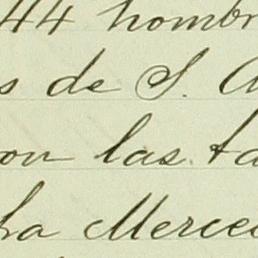 44 hombr
s de S. A
on las ta
ha Merced